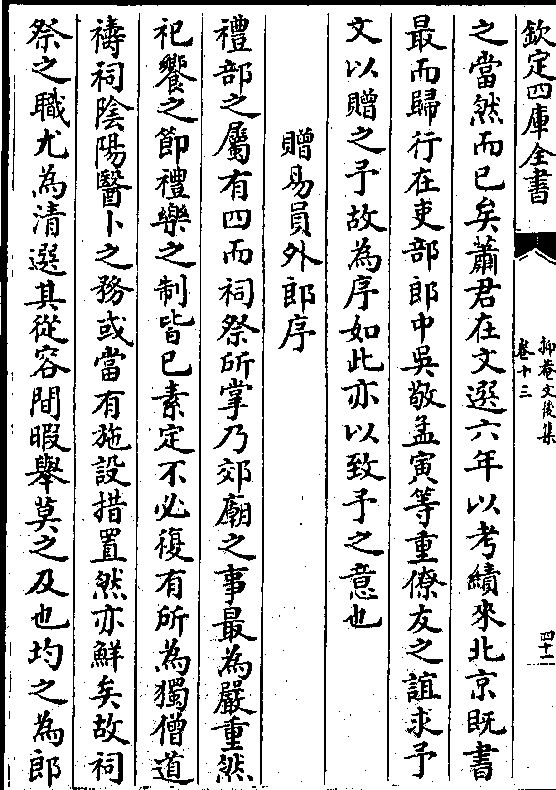 欽定四庫全書
抑菴文後集
卷十三
四十二
之當然而已矣蕭君在文選六年以考績來北京既書
最而歸行在吏部郎中吳敬孟寅等重僚友之誼求予
文以贈之予故為序如此亦以致予之意也
贈易員外郎序
禮部之屬有四而祠祭所掌乃郊廟之事最為嚴重然
祀饗之節禮樂之制皆已素定不必復有所為獨僧道
禱祠陰陽醫卜之務或當有施設措置然亦鮮矣故祠
祭之職尤為清選其從容間暇舉莫之及也均之為郎